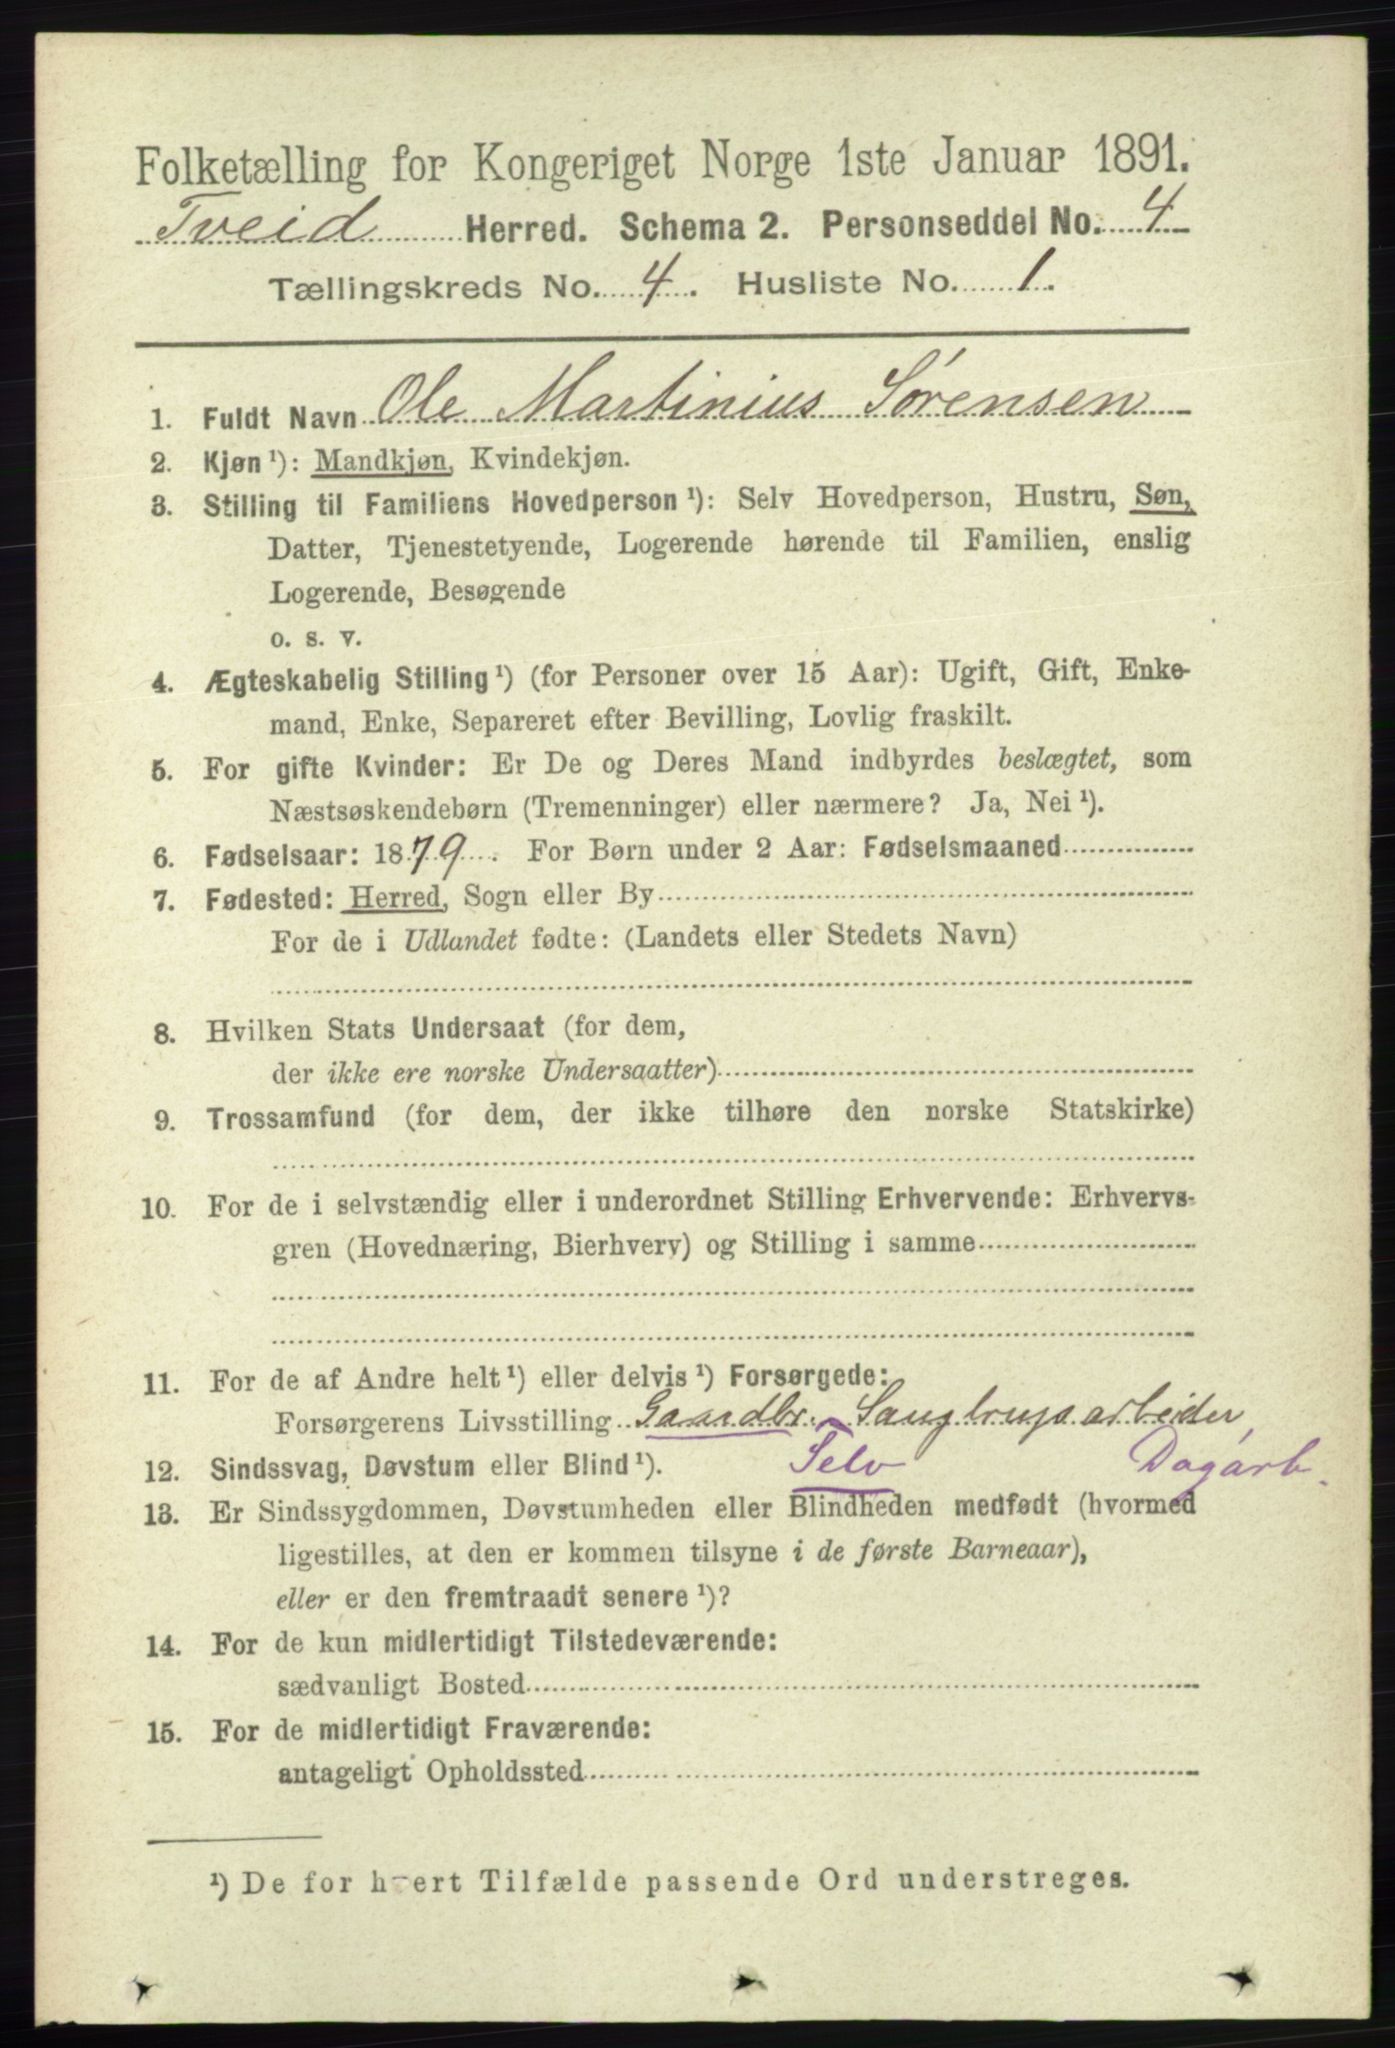 Folketælling for Kongeriget Norge 1ste Januar 1891.
Tveid Herred. Schema 2. Personseddel No. 4
Tællingskreds No. 4. Husliste No. 1.
1. Fuldt Navn Ole Martinius Sørensen
2. Kjøn ¹): Mandkjøn, Kvindekjøn.
3. Stilling til Familiens Hovedperson ¹): Selv Hovedperson, Hustru, Søn,
Datter, Tjenestetyende, Logerende hørende til Familien, enslig
Logerende, Besøgende
o. s. v.
4. Ægteskabelig Stilling ¹) (for Personer over 15 Aar): Ugift, Gift, Enke-
mand, Enke, Separeret efter Bevilling, Lovlig fraskilt.
5. For gifte Kvinder: Er De og Deres Mand indbyrdes beslægtet, som
Næstsøskendebørn (Tremenninger) eller nærmere? Ja, Nei ¹).
6. Fødselsaar: 1879. For Børn under 2 Aar: Fødselsmaaned
7. Fødested: Herred, Sogn eller By
For de i Udlandet fødte: (Landets eller Stedets Navn)
8. Hvilken Stats Undersaat (for dem,
der ikke ere norske Undersaatter)
9. Trossamfund (for dem, der ikke tilhøre den norske Statskirke)
10. For de i selvstændig eller i underordnet Stilling Erhvervende: Erhvervs-
gren (Hovednæring, Bierhverv) og Stilling i samme
11. For de af Andre helt ¹) eller delvis ¹) Forsørgede:
Forsørgerens Livsstilling Gaardbr. Saugbrugsarbeider,
12. Sindssvag, Døvstum eller Blind ¹). Selv Dagarb.
13. Er Sindssygdommen, Døvstumheden eller Blindheden medfødt (hvormed
ligestilles, at den er kommen tilsyne i de første Barneaar),
eller er den fremtraadt senere ¹)?
14. For de kun midlertidigt Tilstedeværende:
sædvanligt Bosted
15. For de midlertidigt Fraværende:
antageligt Opholdssted
¹) De for hvert Tilfælde passende Ord understreges.